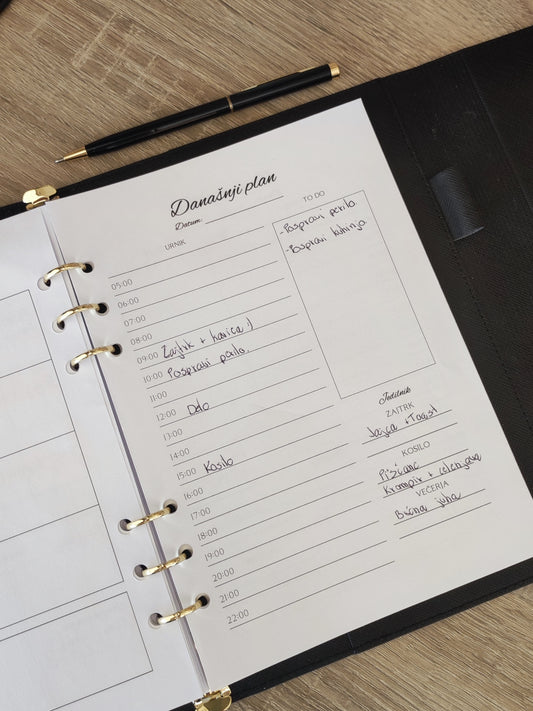 Današnji plan
Datum:
URNIK
TO DO
-Pospravi perilo
-Pospravi kuhinjo
05:00
06:00
07:00
08:00
09:00 Zajtrk + kavica :)
10:00 Pospravi perilo.
11:00
12:00 Delo
13:00
14:00
15:00 Kosilo
16:00
17:00
18:00
19:00
20:00
21:00
22:00
Jedilnik
ZAJTRK
Jajca + Toast
KOSILO
Piščanc
Krompir + zelenjava
VEČERJA
Bučna juha